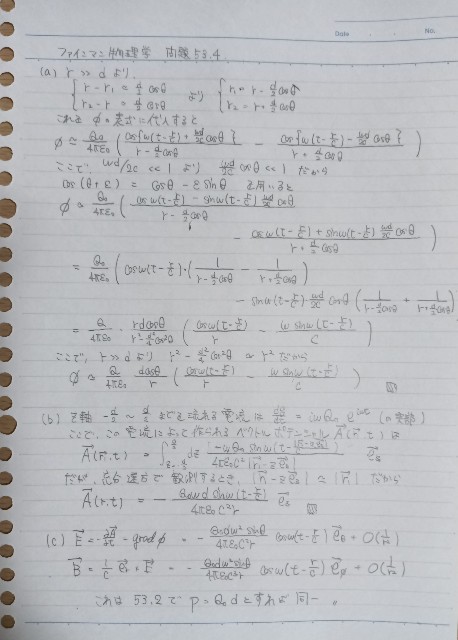 Date No.
ファインマン物理学 問題 53.4
(a) r ≫ d より
{ r - r₁ = d/2 cosθ , r₂ - r = d/2 cosθ より { r₁ = r - d/2 cosθ , r₂ = r + d/2 cosθ
これを φ の表式に代入すると
φ ≈ Q₀/4πε₀ ( cos{ω(t-r/c)+ωd/2c cosθ} / (r - d/2 cosθ) - cos{ω(t-r/c)-ωd/2c cosθ} / (r + d/2 cosθ) )
ここで ωd/2c ≪ 1 より ωd/2c cosθ ≪ 1 だから
cos(θ+ε) = cosθ - ε sinθ を用いると
φ ≈ Q₀/4πε₀ ( (cosω(t-r/c) - sinω(t-r/c) ωd/2c cosθ) / (r - d/2 cosθ)
- (cosω(t-r/c) + sinω(t-r/c) ωd/2c cosθ) / (r + d/2 cosθ) )
= Q₀/4πε₀ ( cosω(t-r/c)·( 1/(r - d/2 cosθ) - 1/(r + d/2 cosθ) )
- sinω(t-r/c) ωd/2c cosθ ( 1/(r - d/2 cosθ) + 1/(r + d/2 cosθ) )
= Q₀/4πε₀ · rd cosθ / (r² - d²/4 cos²θ) ( cosω(t-r/c)/r - ω sinω(t-r/c)/c )
ここで、r ≫ d より r² - d²/4 cos²θ ≈ r² だから
φ ≈ Q₀/4πε₀ dcosθ/r ( cosω(t-r/c)/r - ω sinω(t-r/c)/c )
(b) z軸 -d/2 ~ d/2 までを流れる電流は dQ/dt = iωQ₀ e^{iωt} (の実部)
ここで、この電流によって作られるベクトルポテンシャル A(r,t) は
だが、充分遠方で観測するとき、|r - z e_z| ≈ |r| だから
A(r,t) = - Q₀ωd sinω(t-r/c) / 4πε₀c²r e_z
(c) E = -∂A/∂t - grad φ = - Q₀dω² sinθ / 4πε₀c²r cosω(t-r/c) e_θ + O(1/r²)
B = 1/c e_r × E = - Q₀dω² sinθ / 4πε₀c³r cosω(t-r/c) e_φ + O(1/r²)
これは 53.2 で p = Q₀d とすれば 同一。